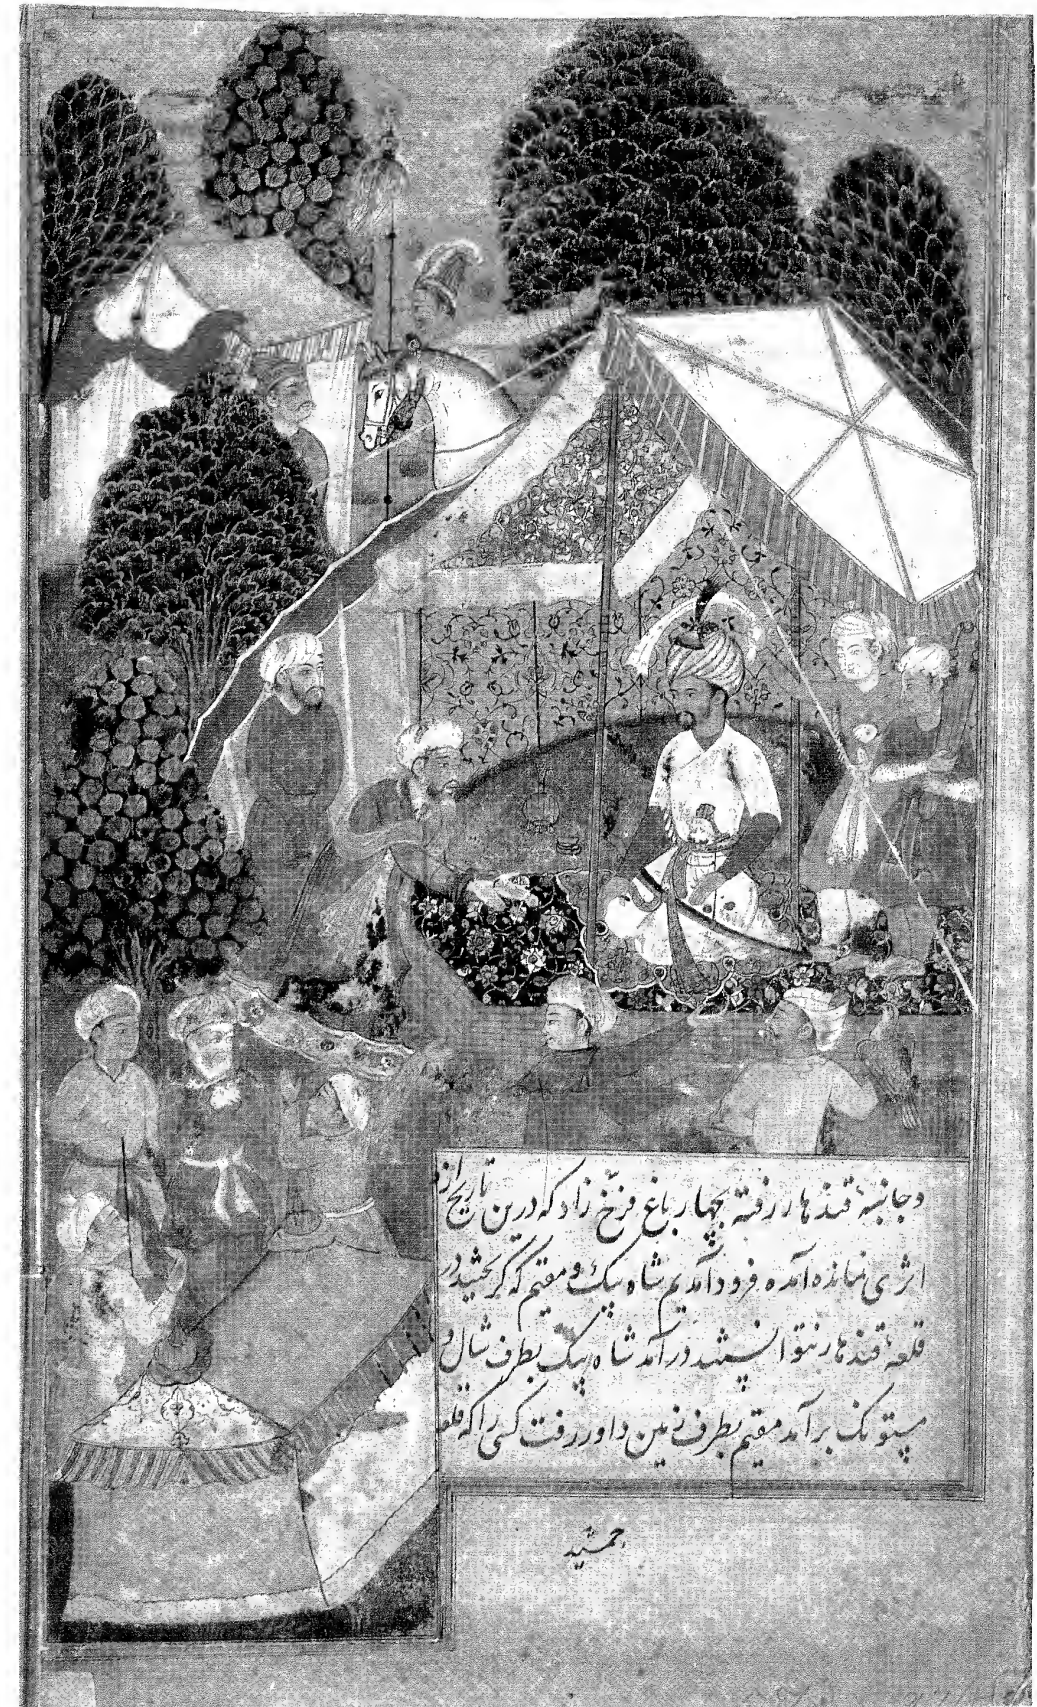 و جانبهٔ قندهار رفته بچهار باغ فرّخ زاد که درین تاریخ ازو
اثری نمانده آمده فرود آمدیم شاه بیک و مقیم که گریختند در
قلعهٔ قندهار نتوانستند در آمد شاه بیک بطرف شال و
مستونک بر آمد مقیم بطرف زمین داور رفت کسی را که قلعه
جمشید